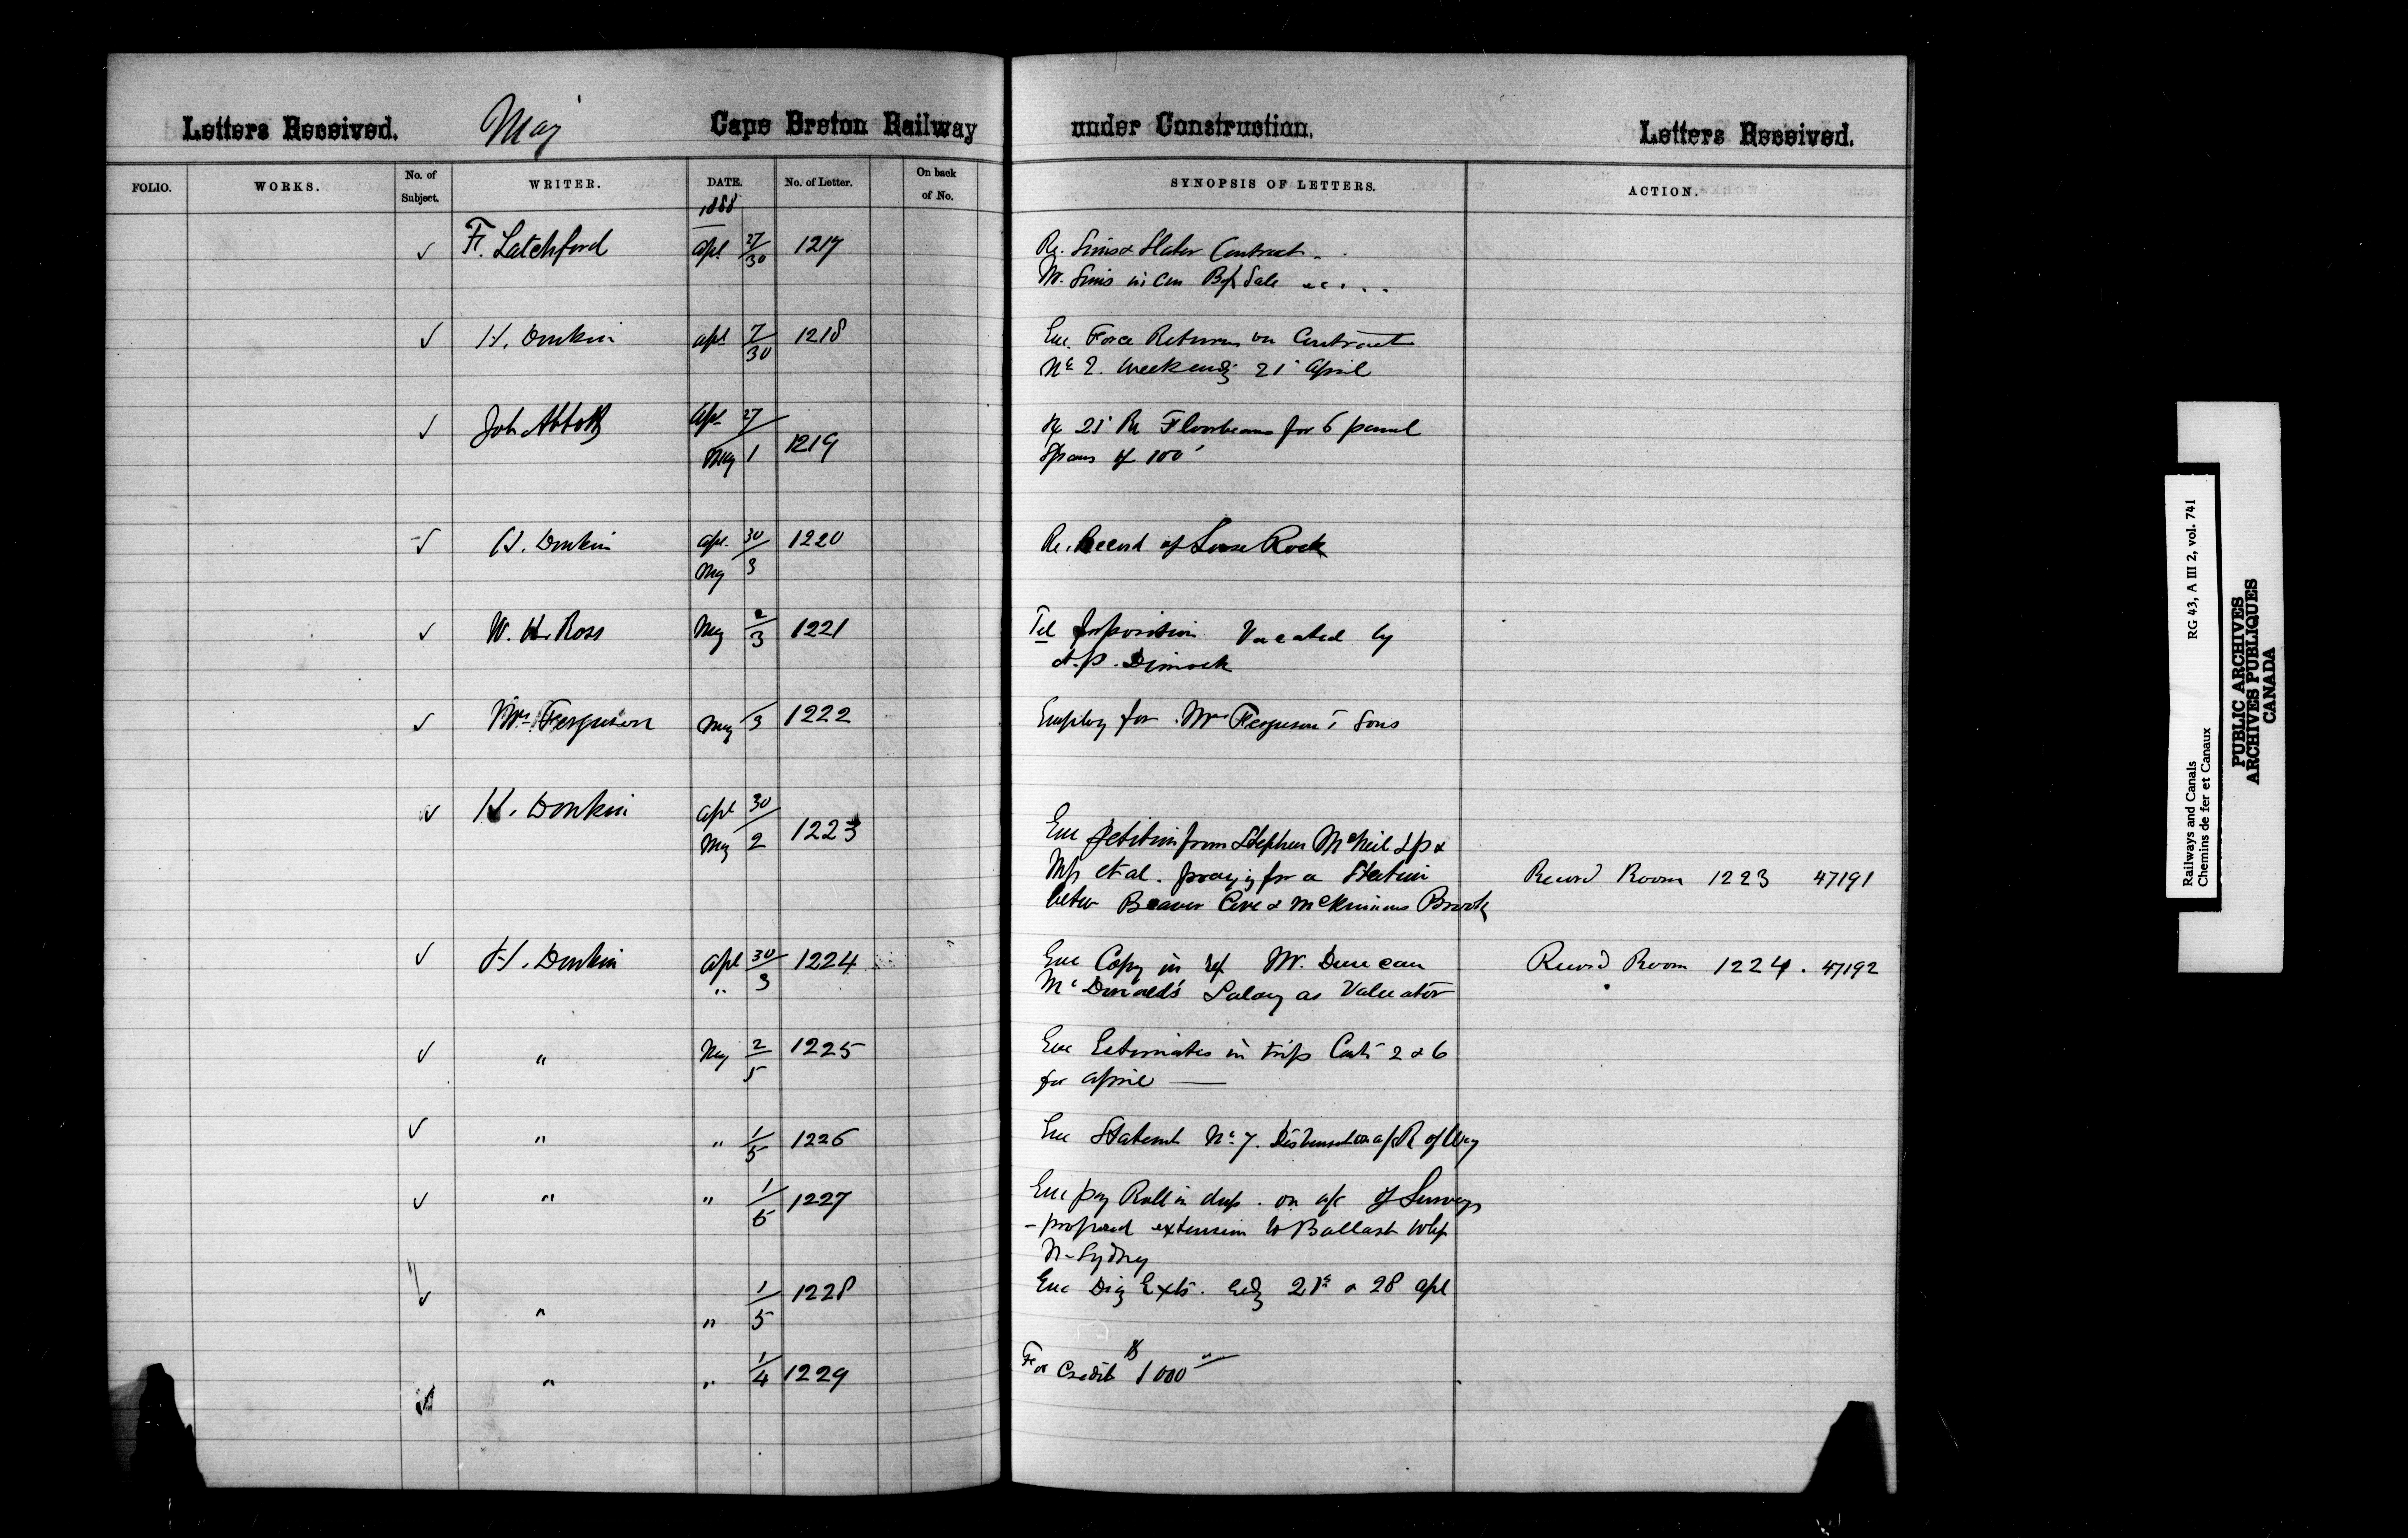 Letters Received. May Cape Breton Railway under Construction. Letters Received.
FOLIO. WORKS. No. of Subject. WRITER. DATE. No. of Letter. On back of No. SYNOPSIS OF LETTERS. ACTION.
1888
✓ F. Latchford Apl 27/30 1217 Re. Sims & Slater Contract
Mr. Sims in
✓ H. Donkin Apl 7/30 1218 Enc. Force Returns on Contract
No 2. Week endg 21 April
✓ Job Abbott Apl 27/ May 1 1219 Re 21 Floorbeams for 6 panel
Spans of 100'
✓ H. Donkin Apl. 30/ May 3 1220 Re. Record of Loose Rock
✓ W. H. Ross May 2/3 1221 Tel for position Vacated by
Dimock
✓ Mrs Ferguson May /3 1222 Employ for Mrs Ferguson's Sons
✓ H. Donkin Apl 30/ May 2 1223 Enc petition from Stephen McNeil &
et al. praying for a Station Record Room 1223 47191
betw Beaver Cove & McKinnons Brook
✓ H. Donkin Apl 30/ " 3 1224 Enc Copy in ref Mr. Duncan Record Room 1224. 47192
McDonald's Salary as Valuator
✓ " May 2/5 1225 Enc Estimates in trip Conts 2 & 6
for April —
✓ " " 1/5 1226 Enc Statemt No 7. a/c R of Way
✓ " " 1/5 1227 Enc pay Roll in dup. on a/c of Surveys
- proposed extension to Ballast Whf
N. Sydney
✓ " " 1/5 1228 Enc 21st & 28 Apl
" " 1/4 1229 For Credit $1000
Railways and Canals RG 43, A III 2, vol. 741
Chemins de fer et Canaux
PUBLIC ARCHIVES
ARCHIVES PUBLIQUES
CANADA